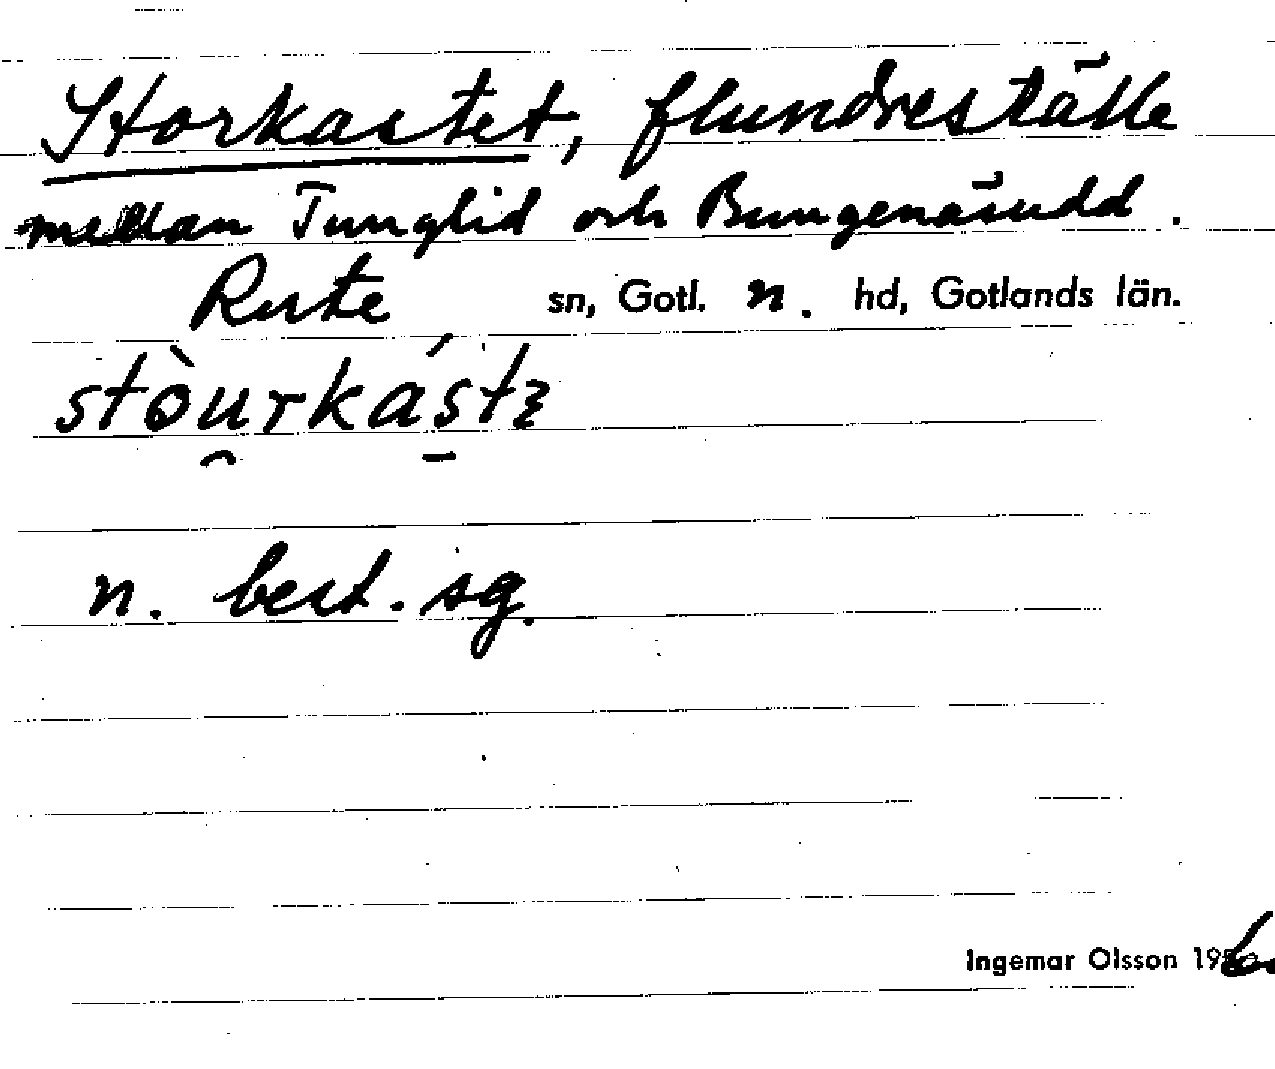 Storkastet, flundreställe
mellan Tunglid och Bungenäsudd.
Rute sn, Gotl. n. hd, Gotlands län.
stòu̯rkás̱tꝫ
n. best. sg.
Ingemar Olsson